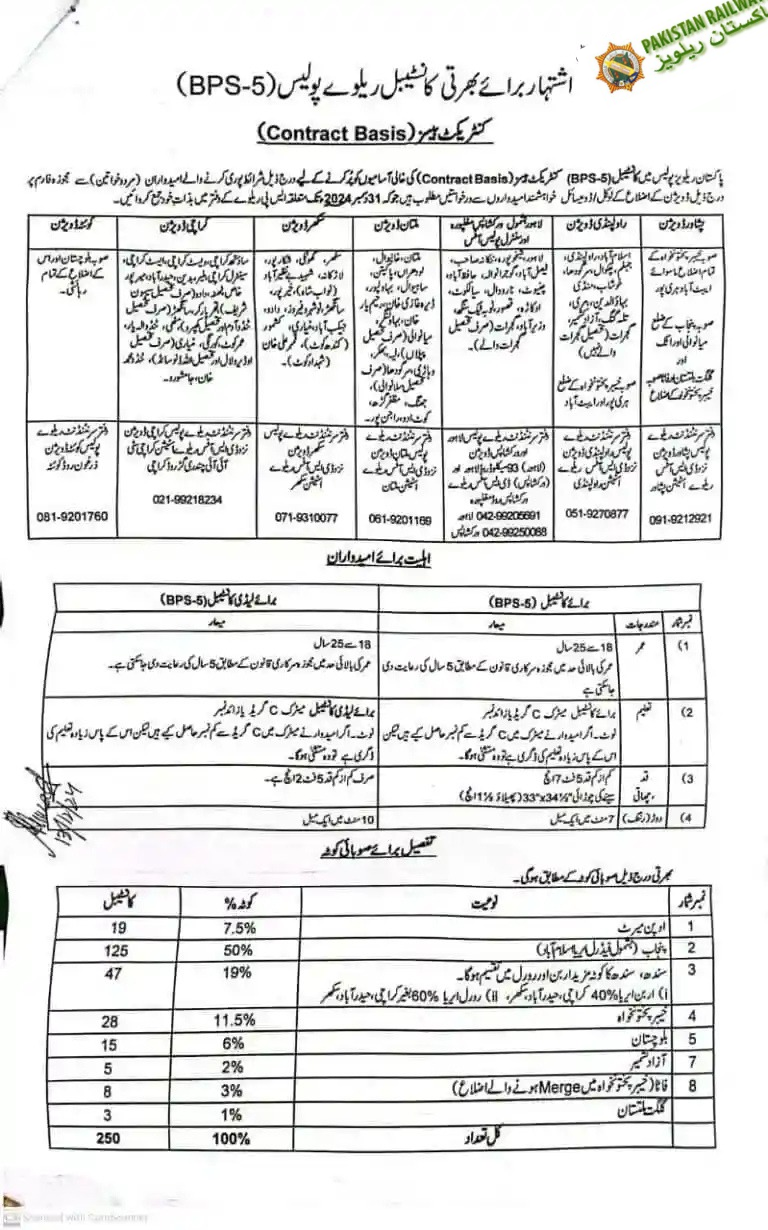 PAKISTAN RAILWAY
پاکستان ریلویز
اشتہار برائے بھرتی کانسٹیبل ریلوے پولیس (BPS-5)
کنٹریکٹ بیسز (Contract Basis)
پاکستان ریلویز پولیس میں کانسٹیبل (BPS-5) کنٹریکٹ بیسز (Contract Basis) کی خالی آسامیوں کو پُر کرنے کے لیے درج ذیل شرائط پوری کرنے والے امیدواران (مرد و خواتین) سے مجوزہ فارم پر
درج ذیل ڈویژن کے اضلاع کے لوکل / ڈومیسائل خواہشمند امیدواروں سے درخواستیں مطلوب ہیں جو کہ 31 دسمبر 2024 تک متعلقہ ایس پی ریلوے کے دفتر میں بذات خود جمع کروائیں۔
پشاور ڈویژن
راولپنڈی ڈویژن
لاہور بشمول ورکشاپس مغلپورہ
اور سنٹرل پولیس آفس
ملتان ڈویژن
سکھر ڈویژن
کراچی ڈویژن
کوئٹہ ڈویژن
صوبہ خیبر پختونخواہ کے
تمام اضلاع ماسوائے
ایبٹ آباد ہری پور
صوبہ پنجاب کے ضلع
میانوالی اور اٹک
اور
گلگت بلتستان اور فاٹا صوبہ
خیبر پختونخواہ کے اضلاع
اسلام آباد، راولپنڈی،
جہلم، چکوال، سرگودھا،
خوشاب، منڈی
بہاؤالدین، مری،
تلہ گنگ، آزاد کشمیر،
گجرات (تحصیل گجرات
والے نہیں)
صوبہ خیبر پختونخواہ کے ضلع
ہری پور اور ایبٹ آباد
لاہور، شیخوپورہ، ننکانہ صاحب،
فیصل آباد، گوجرانوالہ، حافظ آباد،
چنیوٹ، نارووال، سیالکوٹ،
اوکاڑہ، قصور، ٹوبہ ٹیک سنگھ،
وزیر آباد، گجرات (صرف تحصیل
گجرات والے)
ملتان، خانیوال،
لودھراں، پاکپتن،
ساہیوال، بہاولپور،
ڈیرہ غازی خان، رحیم یار
خان، بہاولنگر،
میانوالی (صرف تحصیل
پپلاں)، لیہ، بھکر،
وہاڑی، سرگودھا (صرف
تحصیل سلانوالی)،
جھنگ، مظفر گڑھ،
کوٹ ادو، راجن پور۔
سکھر، گھوٹکی، شکارپور،
لاڑکانہ، شہید بے نظیر آباد
(نواب شاہ)، خیرپور،
سانگھڑ، نوشہرو فیروز، دادو،
جیکب آباد، کشمور
(کندھ کوٹ)، قمبر علی خان
(شہداد کوٹ)۔
صوبہ بلوچستان اور اس
کے اضلاع کے تمام
رہائشی۔
دفتر سپرنٹنڈنٹ ریلوے
پولیس پشاور ڈویژن
نزد ڈی ایس آفس
ریلوے اسٹیشن پشاور
091-9212921
دفتر سپرنٹنڈنٹ ریلوے
پولیس راولپنڈی ڈویژن
نزد ڈی ایس آفس ریلوے
اسٹیشن راولپنڈی
051-9270877
دفتر سپرنٹنڈنٹ ریلوے پولیس لاہور
اور ورکشاپس ڈویژن
(لاہور) 93 میکلوڈ روڈ لاہور اور
(ورکشاپس) ڈی ایس ریلوے
ورکشاپس روڈ مغلپورہ
042-99205691 لاہور
042-99250068 ورکشاپس
دفتر سپرنٹنڈنٹ ریلوے
پولیس ملتان ڈویژن
نزد ڈی ایس آفس ریلوے
اسٹیشن ملتان
061-9201169
دفتر سپرنٹنڈنٹ ریلوے پولیس
سکھر ڈویژن
نزد ڈی ایس آفس ریلوے
اسٹیشن سکھر
071-9310077
دفتر سپرنٹنڈنٹ ریلوے پولیس کراچی ڈویژن
نزد ڈی ایس آفس ریلوے اسٹیشن کراچی آئی
آئی چندریگر روڈ کراچی
021-99218234
دفتر سپرنٹنڈنٹ ریلوے
پولیس کوئٹہ ڈویژن
زرغون روڈ کوئٹہ
081-9201760
اہلیت برائے امیدواران
برائے کانسٹیبل (BPS-5)
برائے لیڈی کانسٹیبل (BPS-5)
نمبر شمار
مندرجات
معیار
معیار
1)
عمر
18 سے 25 سال
عمر کی بالائی حد میں مجوزہ سرکاری قانون کے مطابق 5 سال کی رعایت دی
جا سکتی ہے
18 سے 25 سال
عمر کی بالائی حد میں مجوزہ سرکاری قانون کے مطابق 5 سال کی رعایت دی جا سکتی ہے۔
2)
تعلیم
برائے کانسٹیبل میٹرک C گریڈ یا زائد نمبر
نوٹ۔ اگر امیدوار نے میٹرک میں C گریڈ سے کم نمبر حاصل کیے ہیں لیکن
اس کے پاس زیادہ تعلیم کی ڈگری ہے تو وہ مستثنیٰ ہوگا۔
برائے لیڈی کانسٹیبل میٹرک C گریڈ یا زائد نمبر
نوٹ۔ اگر امیدوار نے میٹرک میں C گریڈ سے کم نمبر حاصل کیے ہیں لیکن اس کے پاس زیادہ تعلیم کی
ڈگری ہے تو وہ مستثنیٰ ہوگا۔
3)
قد
چھاتی
کم از کم قد 5 فٹ 7 انچ
سینے کی چوڑائی 33"x34½" (پھیلاؤ 1½ انچ)
صرف کم از کم قد 5 فٹ 2 انچ ہے۔
4)
دوڑ (رننگ)
7 منٹ میں ایک میل
10 منٹ میں ایک میل
13/12/24
تفصیل برائے صوبائی کوٹہ
بھرتی درج ذیل صوبائی کوٹہ کے مطابق ہوگی۔
نمبر شمار
نوعیت
کوٹہ %
کانسٹیبل
1
اوپن میرٹ
7.5%
19
2
پنجاب (بشمول فیڈرل ایریا اسلام آباد)
50%
125
3
سندھ، سندھ کا کوٹہ مزید اربن اور رورل میں تقسیم ہوگا۔
i) اربن ایریا 40% کراچی، حیدر آباد، سکھر، ii) رورل ایریا 60% بغیر کراچی، حیدر آباد، سکھر
19%
47
4
خیبر پختونخواہ
11.5%
28
5
بلوچستان
6%
15
7
آزاد کشمیر
2%
5
8
فاٹا (خیبر پختونخواہ میں Merge ہونے والے اضلاع)
3%
8
گلگت بلتستان
1%
3
کل تعداد
100%
250
Scanned with CamScanner